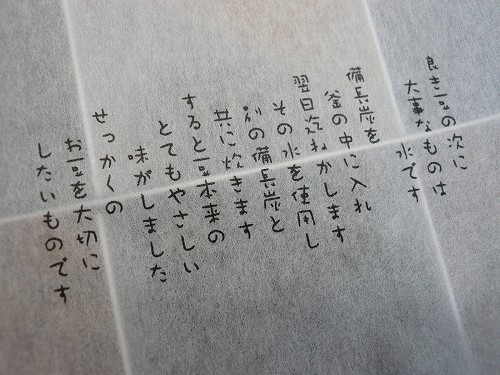 良き豆の次に
大事なものは
水です
備長炭を
釜の中に入れ
翌日迄ねかします
その水を使用し
別の備長炭と
共に炊きます
すると豆本来の
とてもやさしい
味がしました
せっかくの
お豆を大切に
したいものです